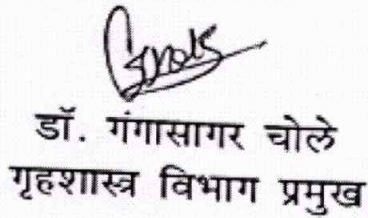 डॉ. गंगासागर चोले
गृहशास्त्र विभाग प्रमुख